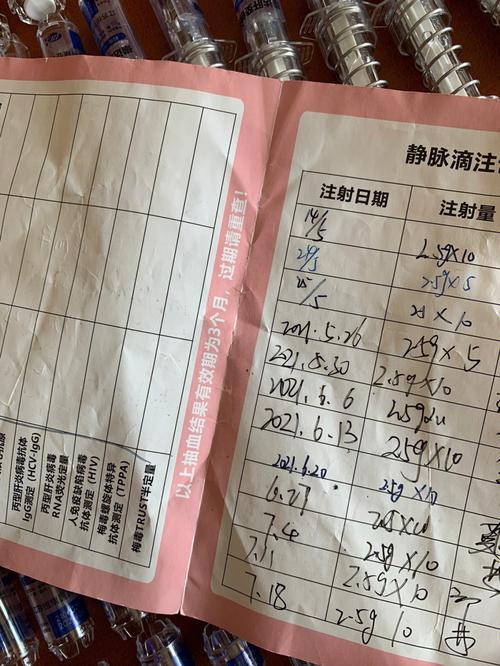 丙型肝炎病毒抗体
IgG测定 (HCV-IgG)
丙型肝炎病毒
RNA荧光定量
人免疫缺陷病毒
抗体测定 (HIV)
梅毒螺旋体特异
抗体测定 (TPPA)
梅毒TRUST半定量
以上抽血结果有效期为3个月，过期请重查！
静脉滴注
注射日期 注射量
14/5 2.5g×10
2.5g×5
25/5 ×10
2021.5.26 2.5g×5
2021.5.30 2.5g×10
2021.6.6 2.5g
2021.6.13 2.5g×10
2021.6.20 2.5g×10
6.27 2.5×10
7.4 2.5g×10
7.11 2.5g×10
7.18 2.5g 10